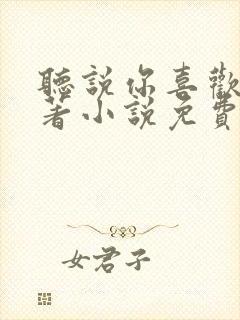 聽說你喜歡
著小說免費
女君子